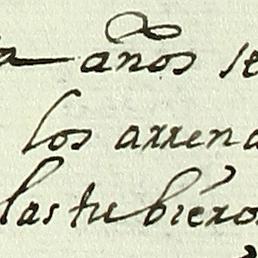 a años se
los arrend
las tubiéro